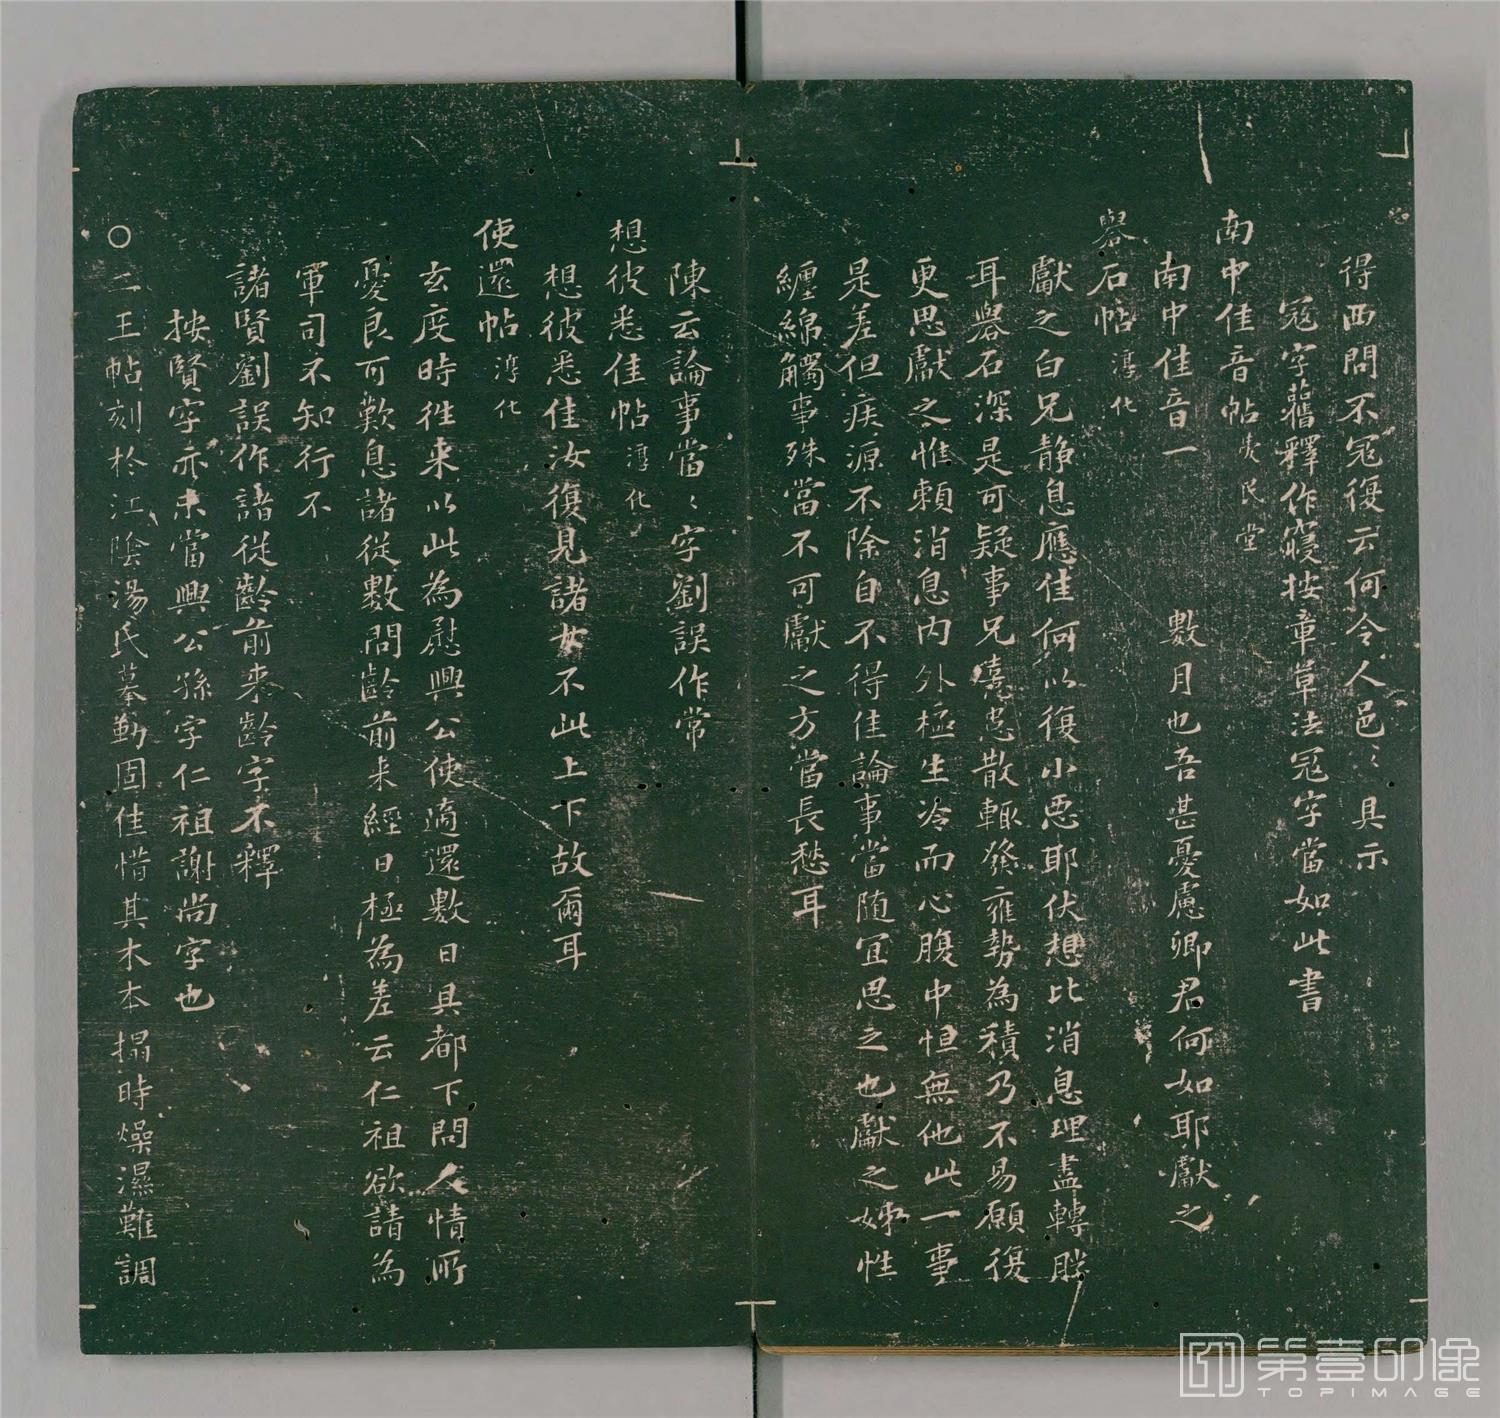 得西問不冦復云何令人邑〻具示
冦字舊釋作寢按章草法冦字當如此書
南中佳音帖 民堂
南中佳音一 數月也吾甚憂慮卿君何如耶獻之
礜石帖 淳化
獻之白兄静息應佳何以復小惡耶伏想比消息理盡轉勝
耳礜石深是可疑事兄憙患散輒發癰勢為積乃不易願復
更思獻之惟賴消息内外極生冷而心腹中恒無他此一事
是差但疾源不除自不得佳論事當随宜思之也獻之姊性
纏綿觸事殊當不可獻之方當長愁耳
陳云論事當〻字劉誤作常
想彼悉佳帖 淳化
想彼悉佳汝復見諸女不此上下故爾耳
使還帖 淳化
玄度時徃来以此為慰興公使適還數日具都下問人情所
憂良可歎息諸從數問齡前来經日極為差云仁祖欲請為
軍司不知行不
諸賢劉誤作諸從齡前来齡字不釋
按賢字亦未當興公孫字仁祖謝尚字也
○二王帖刻於江陰湯氏摹勒固佳惜其木本搨時燥濕難調
第壹印像
TOPIMAGE